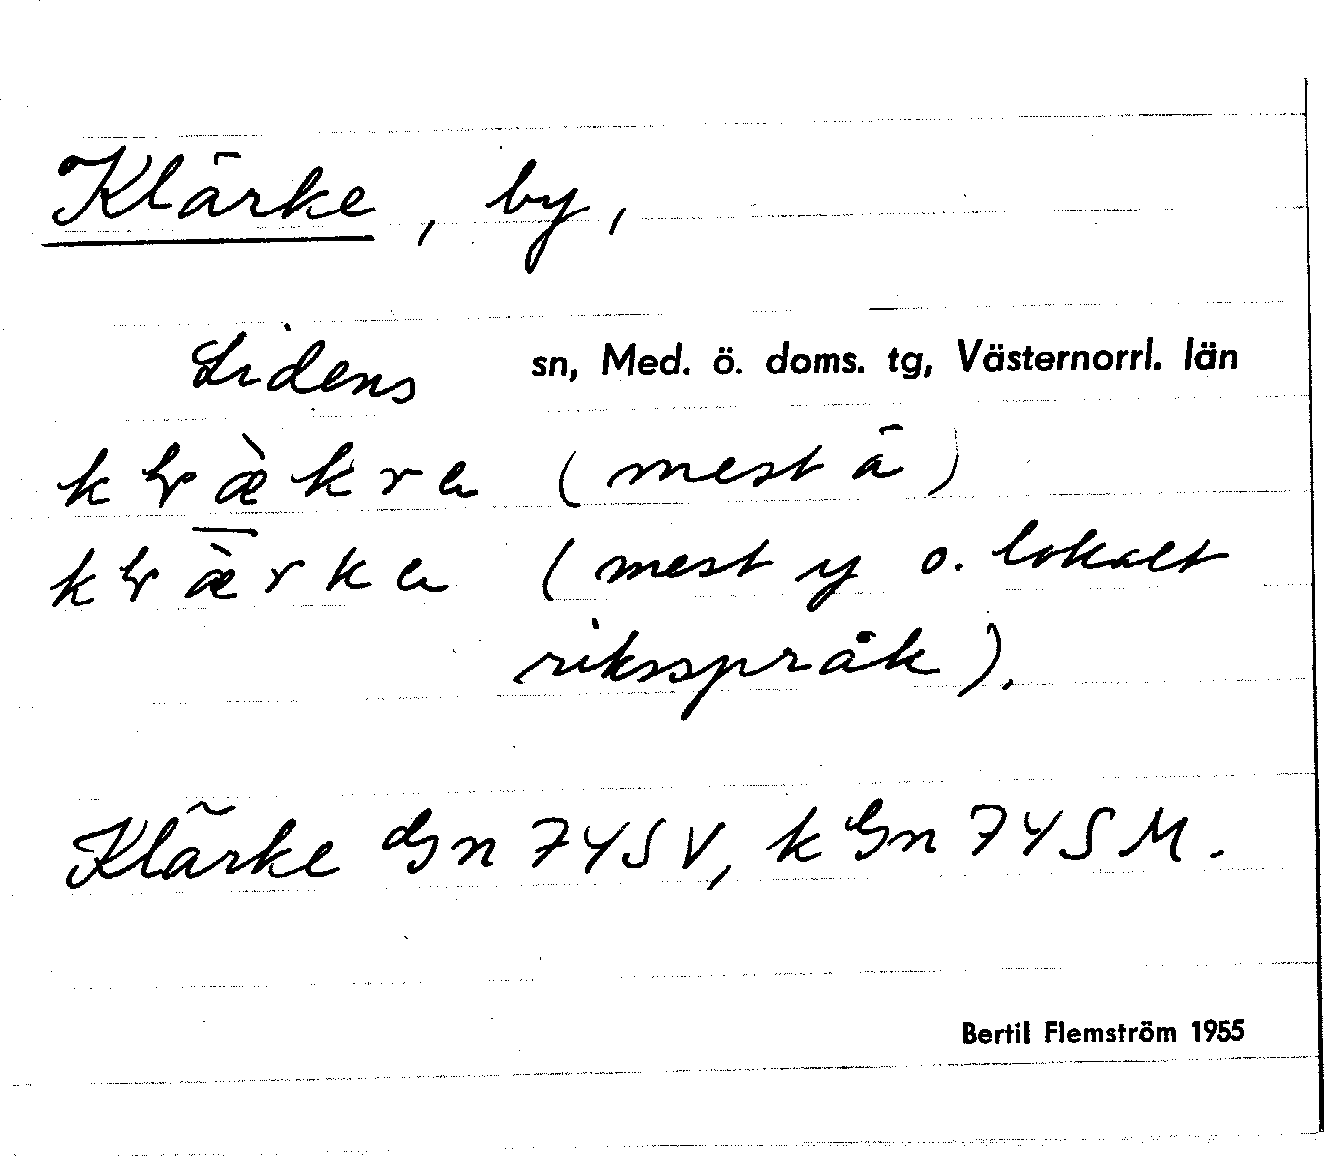 Klärke, by,
Lidens sn, Med. ö. doms. tg, Västernorrl. län
(mest ä)
(mest y o. lokalt
riksspråk).
Klärke Gn 74SV, k Gn 74SM.
Bertil Flemström 1955